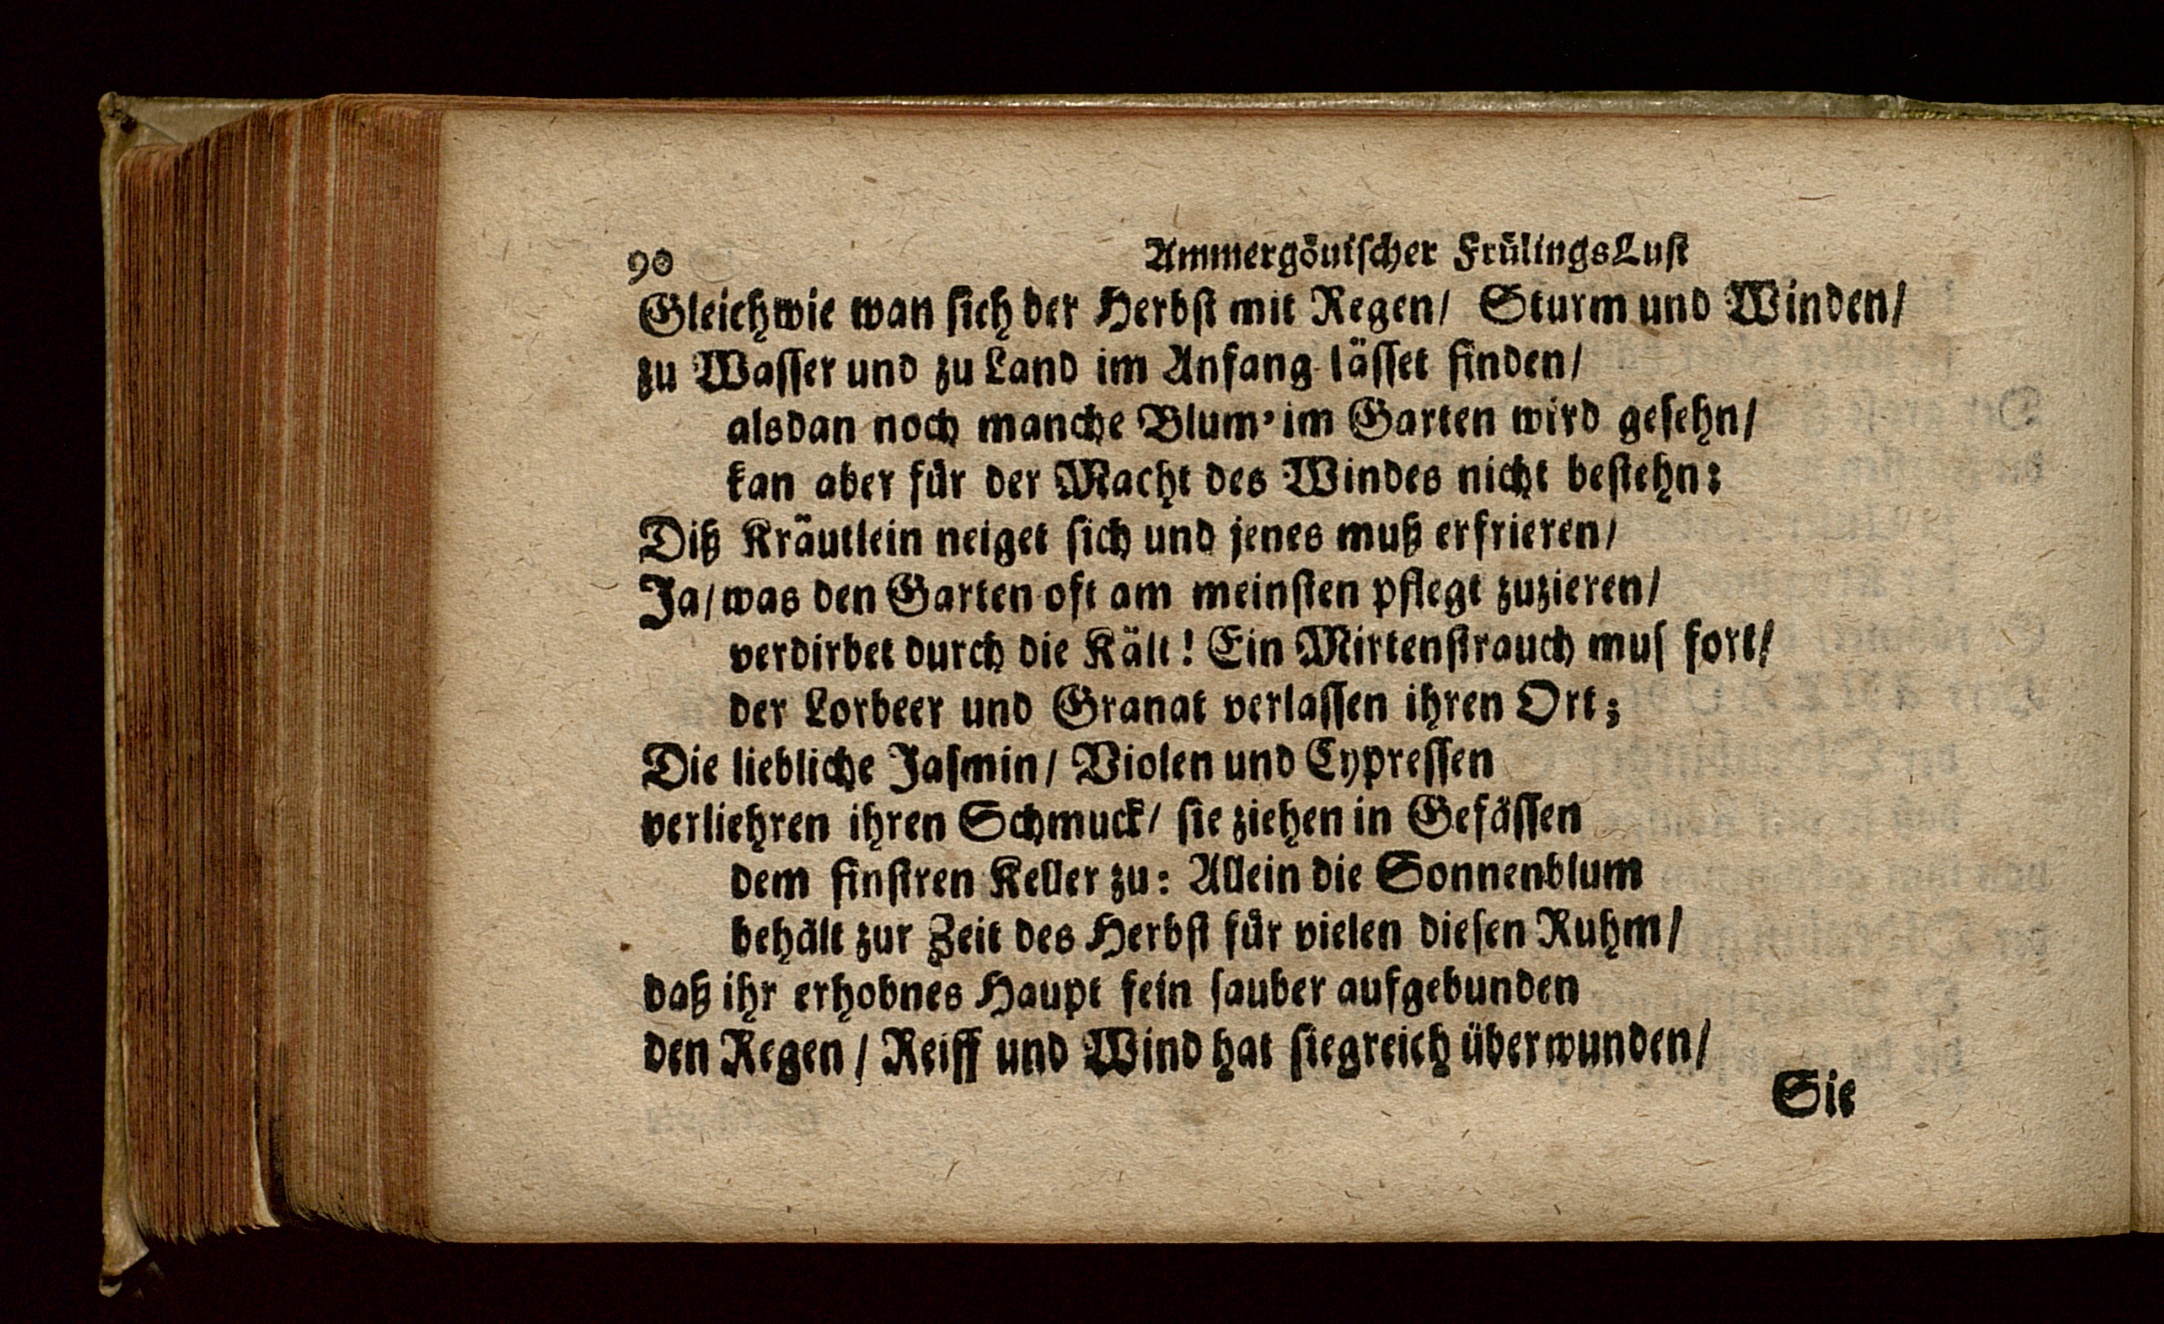 90 Ammergöuiſcher FrülingsLuſt
Gleichwie wan ſich der Herbſt mit Regen/ Sturm und Winden/
zu Waſſer und zu Land im Anfang läſſet finden/
alsdan noch manche Blum' im Garten wird geſehn/
kan aber für der Macht des Windes nicht beſtehn:
Diß Kräutlein neiget ſich und jenes muß erfrieren/
Ja/ was den Garten oft am meinſten pflegt zuzieren/
verdirbet durch die Kält! Ein Mirtenſtrauch muſ fort/
der Lorbeer und Granat verlaſſen ihren Ort;
Die liebliche Jaſmin/ Violen und Cypreſſen
verliehren ihren Schmuck/ ſie ziehen in Gefäſſen
dem finſtren Keller zu: Allein die Sonnenblum
behält zur Zeit des Herbſt für vielen dieſen Ruhm/
daß ihr erhobnes Haupt fein ſauber aufgebunden
den Regen/ Reiff und Wind hat ſiegreich überwunden/
Sie